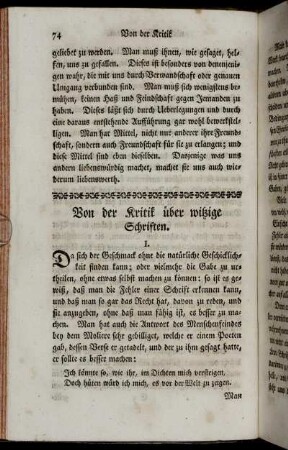 74 Von der Kritik
geliebet zu werden. Man muß ihnen, wie gesaget, hel-
fen, uns zu gefallen. Dieses ist besonders von denenjeni-
gen wahr, die mit uns durch Verwandschaft oder genauen
Umgang verbunden sind. Man muß sich wenigstens be-
mühen, keinen Haß und Feindschaft gegen Jemanden zu
haben. Dieses läßt sich durch Ueberlegungen und durch
eine daraus entstehende Aufführung gar wohl bewerkstel-
ligen. Man hat Mittel, nicht nur anderer ihre Freund-
schaft, sondern auch Freundschaft für sie zu erlangen; und
diese Mittel sind eben dieselben. Dasjenige was uns
andern liebenswürdig machet, machet sie uns auch wie-
derum liebenswerth.
Von der Kritik über witzige
Schriften.
I.
Da sich der Geschmack ohne die natürliche Geschicklich-
keit finden kann; oder vielmehr die Gabe zu ur-
theilen, ohne etwas selbst machen zu können: so ist es ge-
wiß, daß man die Fehler einer Schrift erkennen kann,
und daß man so gar das Recht hat, davon zu reden, und
sie anzugeben, ohne daß man fähig ist, es besser zu ma-
chen. Man hat auch die Antwort des Menschenfeindes
bey dem Moliere sehr gebilliget, welche er einem Poeten
gab, dessen Verse er getadelt, und der zu ihm gesagt hatte,
er sollte es besser machen:
Ich könnte so, wie ihr, im Dichten mich versteigen.
Doch hüten würd ich mich, es vor der Welt zu zeigen.
Man